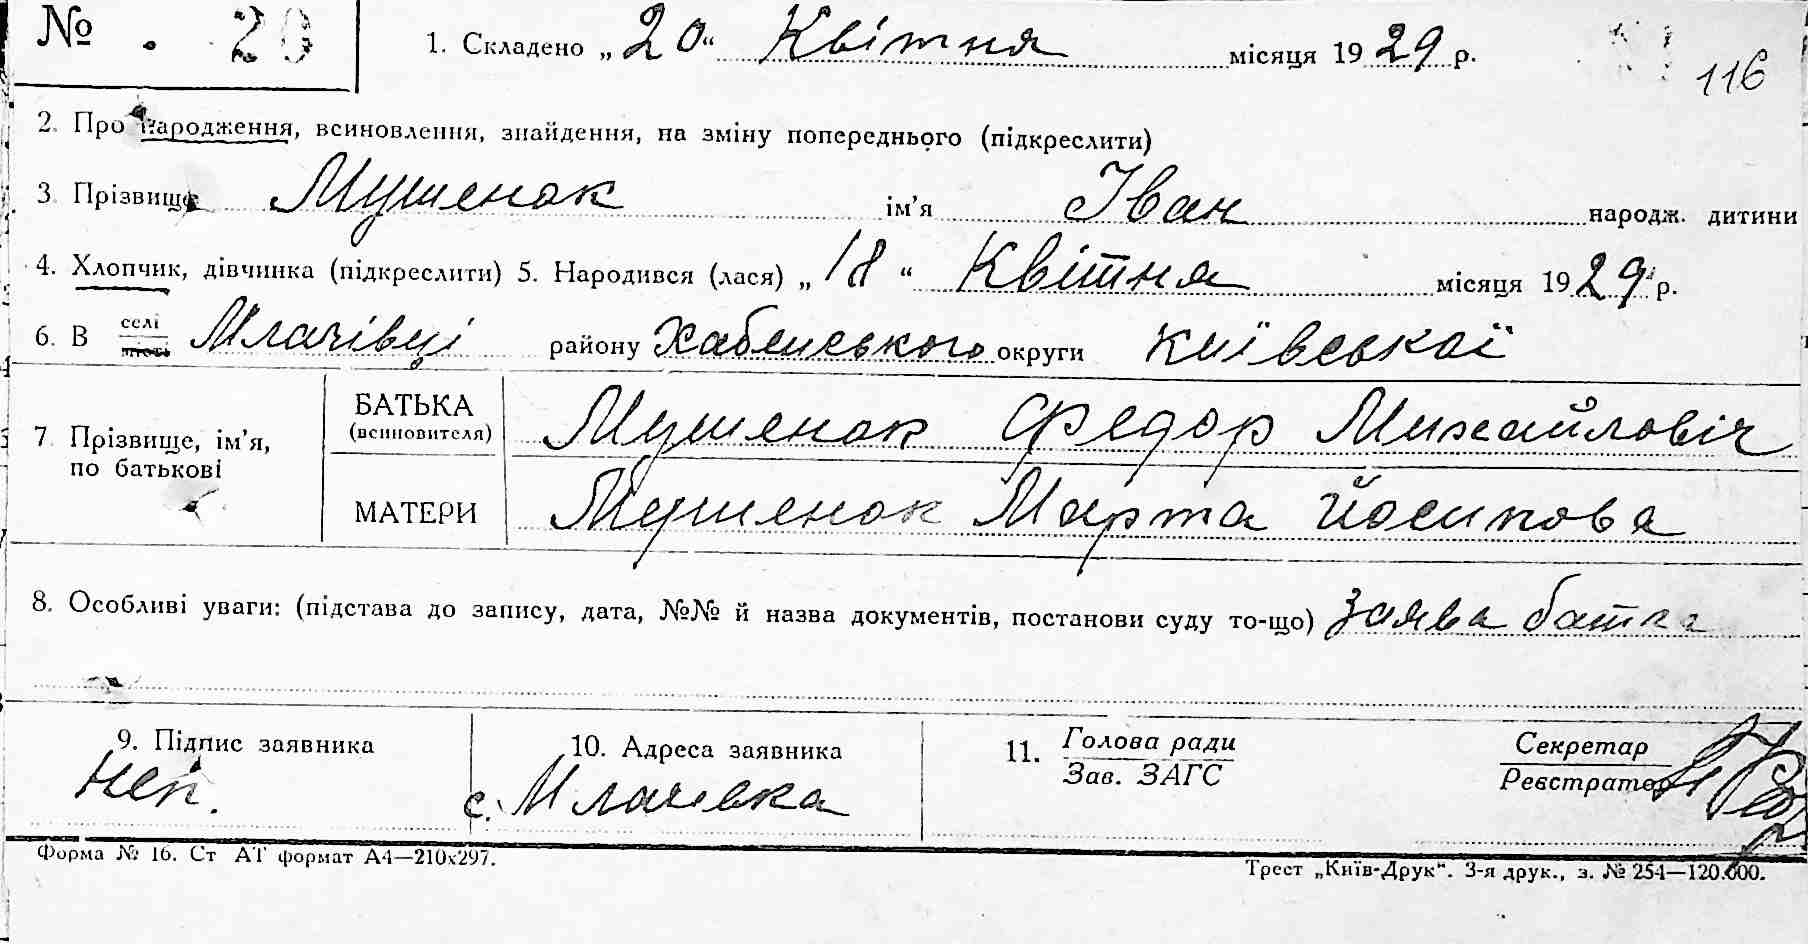 № 20 1. Складено „20“ Квітня місяця 1929 р.
116
2. Про народження, всиновлення, знайдення, на зміну попереднього (підкреслити)
3. Прізвище Мушенок ім’я Іван народж. дитини
4. Хлопчик, дівчинка (підкреслити) 5. Народився (лася) „18“ Квітня місяця 1929 р.
6. В селі Млачівці району Хабенського округи Київської
7. Прізвище, ім’я, по батькові
БАТЬКА (всиновителя) Мушенок Федор Михайловіч
МАТЕРИ Мушенок Марта Йосипова
8. Особливі уваги: (підстава до запису, дата, №№ й назва документів, постанови суду то-що) Заява батка
9. Підпис заявника 10. Адреса заявника 11. Голова ради Секретар
Зав. ЗАГС Реєстратор
Неп. с. Млачевка
Форма № 16. Ст АТ формат А4—210х297.
Трест „Київ-Друк“. 3-я друк., з. № 254—120.000.